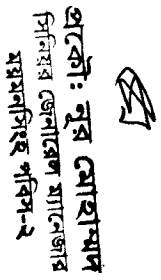 প্রকৌঃ নূর মোহাম্মদ
সিনিয়র জেনারেল ম্যানেজার
ময়মনসিংহ পবিস-২